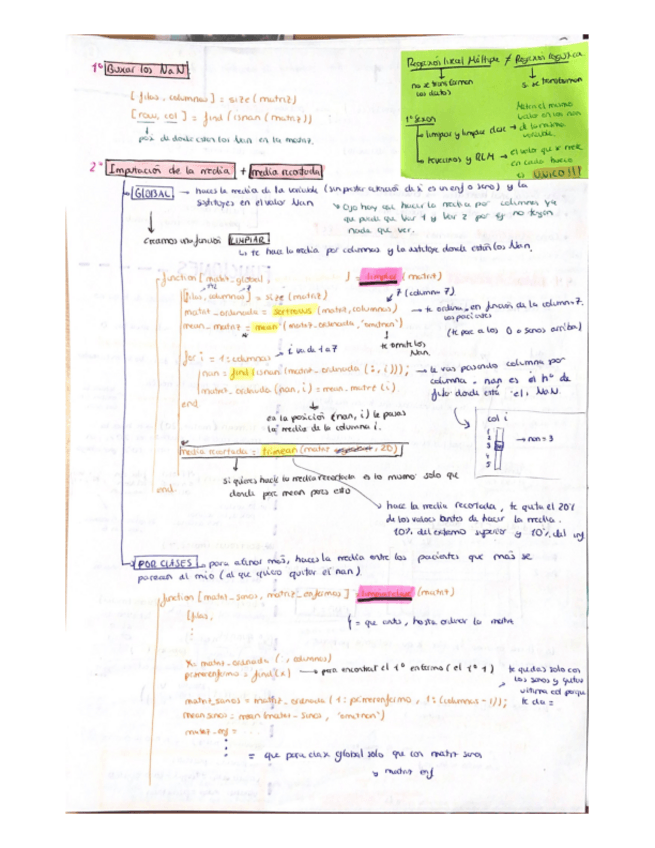 1º Buscar los NaN
[filas, columnas] = size (matriz)
[row, col] = find (isnan (matriz))
pos de donde estan los NaN en la matriz.
Regresión lineal Múltiple ≠ Regresión logística
no se transforman los datos
si se transforman
1ª sesión
limpiar y limpiar clase →
vecinos y RLM →
el valor que se mete en cada hueco es ÚNICO!!!
2º Imputación de la media + media recortada
GLOBAL → haces la media de la variable (sin prestar atención de si es un enf o sano) y la
sustituyes en el valor NaN
Ojo hay que hacer la media por columnas ya
que puede que var 1 y var 2 por ej no tengan
nada que ver.
creamos una función LIMPIAR
te hace la media por columnas y la sustituye donde están los NaN.
function [matriz_global] = limpiar (matriz)
[filas, columnas] = size (matriz)
7 (columna 7)
matriz_ordenada = sortrows (matriz, columnas) → te ordena en función de la columna 7.
los pacientes
mean_matriz = mean (matriz_ordenada, "omitnan")
(te pone a los 0 o sanos arriba)
te omite los NaN.
for i = 1:columnas → i va de 1 a 7
nan = find (isnan (matriz_ordenada (:, i))); → le vas pasando columna por
columna. nan es el nº de
fila donde está el NaN.
matriz_ordenada (nan, i) = mean_matriz (i).
end
en la posición (nan, i) le pasas
la media de la columna i.
col i
1
2
3
4
5
→ nan = 3
media recortada = trimmean (matriz, 20)
si quieres hacer la media recortada es lo mismo solo que
donde pone mean pones esto
end
hace la media recortada, te quita el 20%
de los valores antes de hacer la media.
10% del extremo superior y 10% del inf
POR CLASES → para afinar más, haces la media entre los pacientes que más se
parezcan al mio (al que quiero quitar el nan).
function [matriz_sanos, matriz_enfermos] = limpiarclase (matriz)
[filas,
= que antes, hasta ordenar la matriz
X = matriz_ordenada (:, columnas)
primerenfermo = find (x) → para encontrar el 1º enfermo (el 1º 1)
te quedas solo con
los sanos y quitas
última col porque
te da =
matriz_sanos = matriz_ordenada (1: primerenfermo, 1: (columnas - 1));
meansanos = mean (matriz_sanos, "omitnan")
matriz_enf =
= que para clase global solo que con matriz sanos
y matriz enf